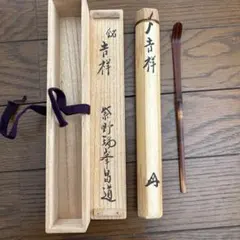 銘
吉祥
紫野瑞峯昌道
吉祥